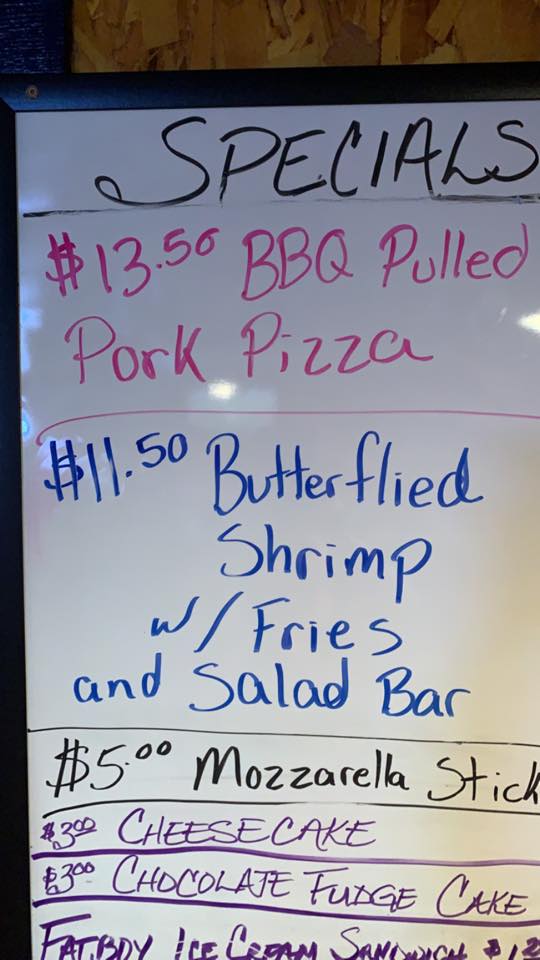 SPECIALS
$13.50 BBQ Pulled
Pork Pizza
$11.50 Butterflied
Shrimp
w/ Fries
and Salad Bar
$5.00 Mozzarella Stick
$3.00 CHEESECAKE
$3.00 CHOCOLATE FUDGE CAKE
FATBOY ICE CREAM SANDWICH